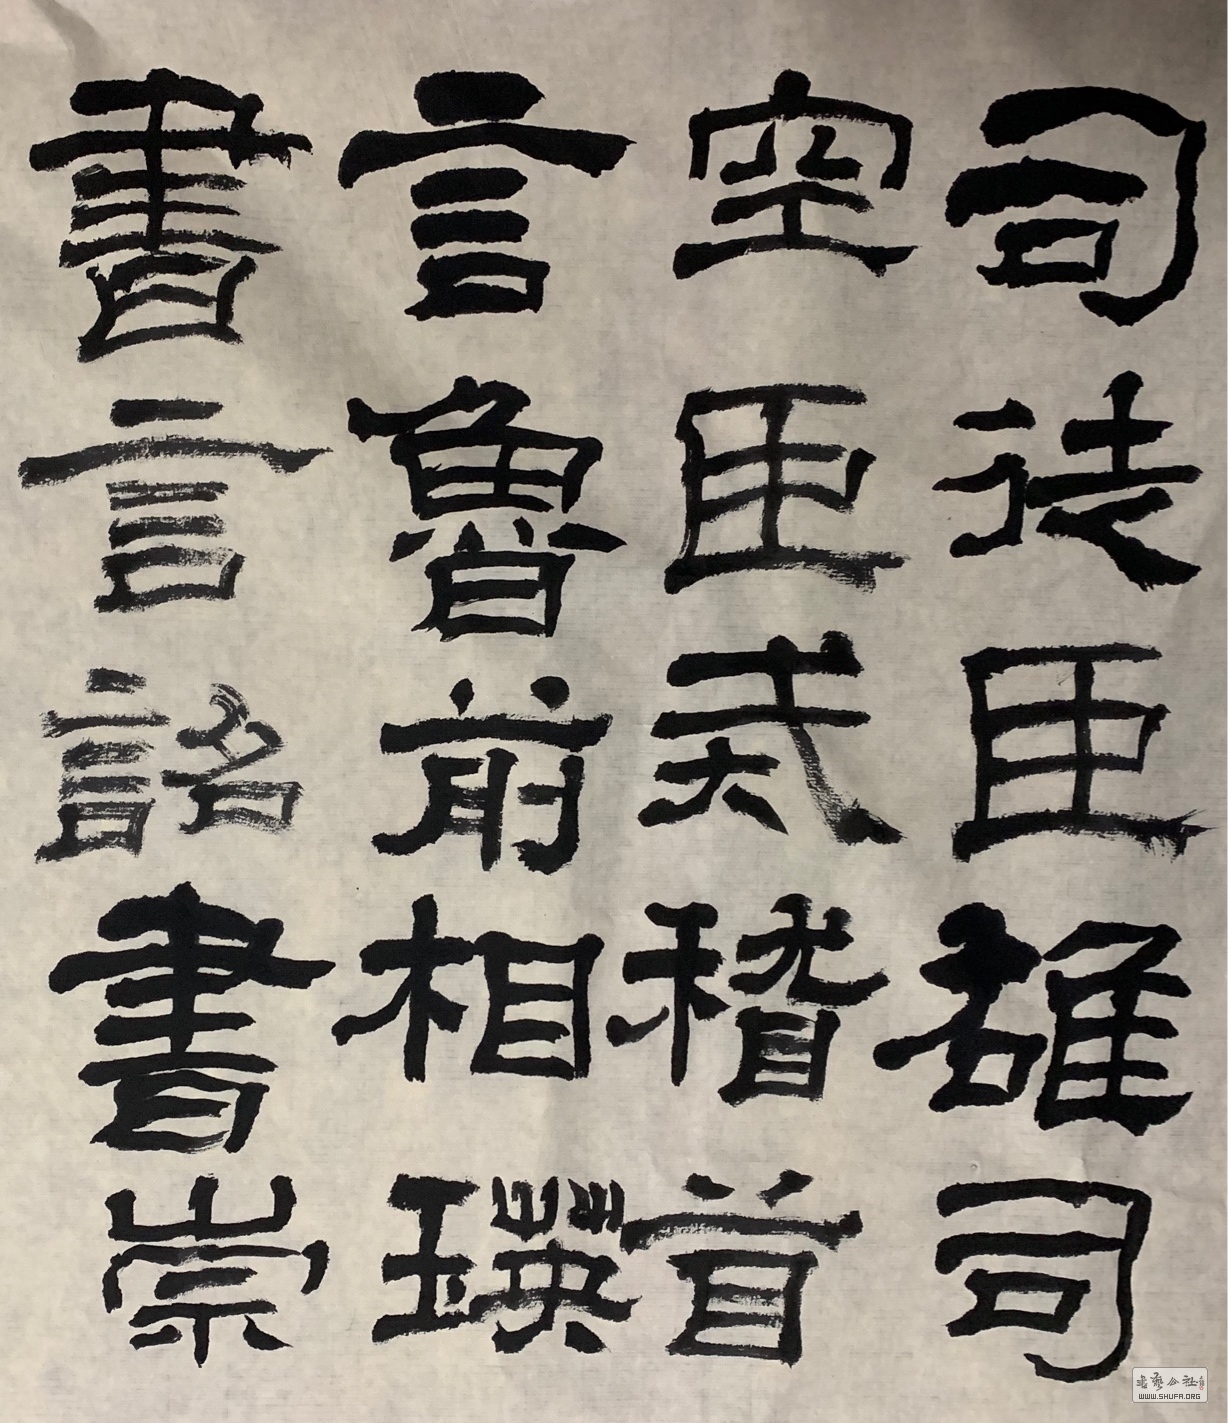 司徒臣雄司
空臣戒稽首
言魯前相瑛
書言詔書崇
書藝公社
WWW.SHUFA.ORG